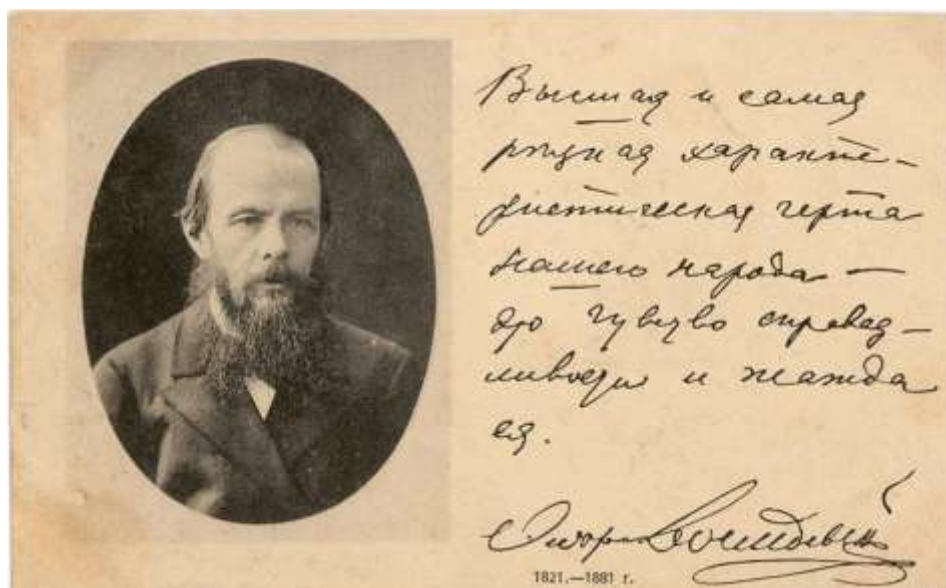 Высшая и самая
резкая характе-
ристическая черта
нашего народа —
это чувство справед-
ливости и жажда
ея.
Федор Достоевский
1821.—1881 г.